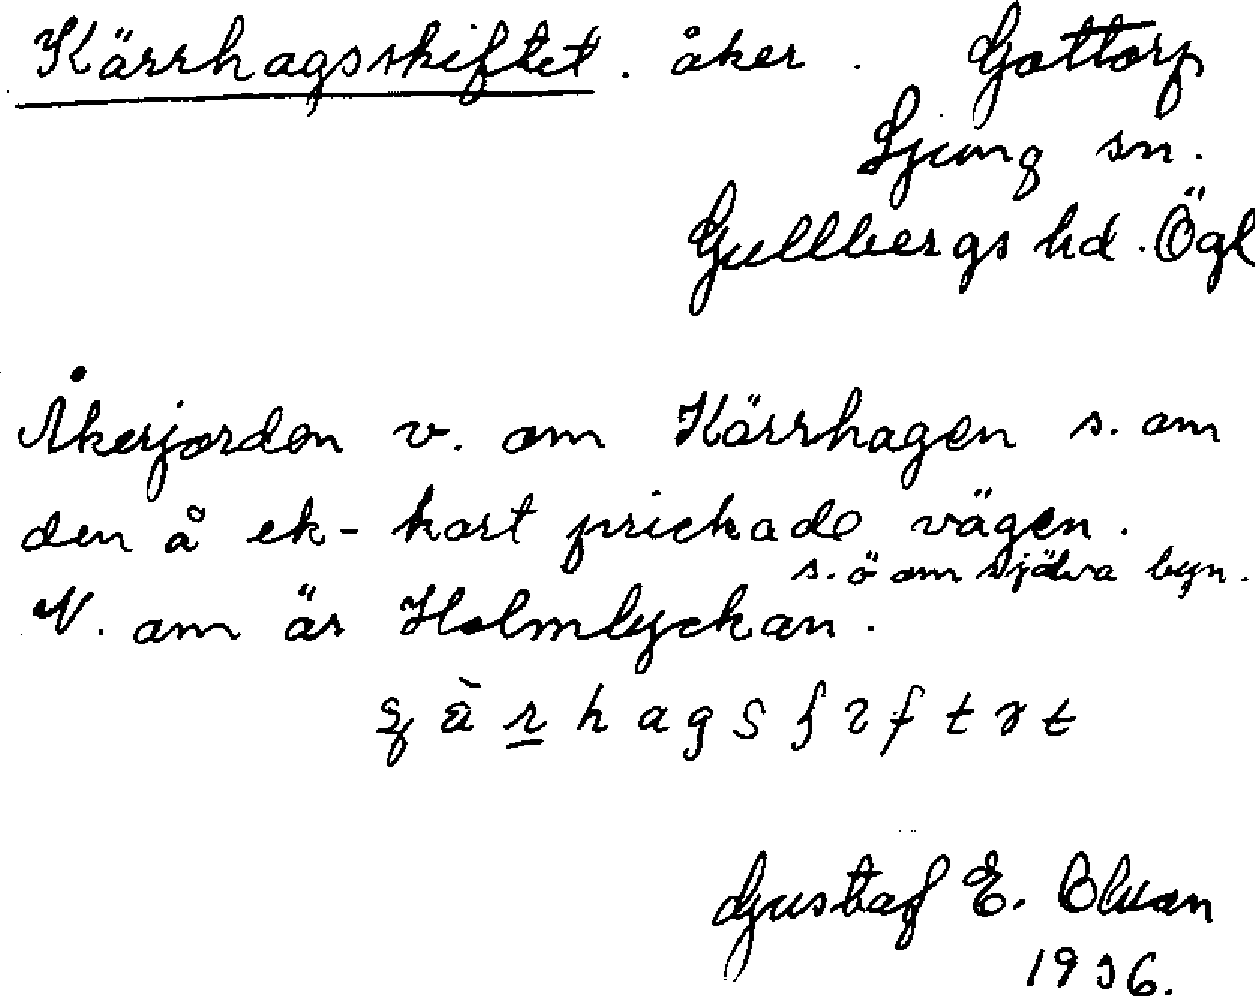 Kärrhagsskiftet. åker. Gottorp
Ljung sn.
Gullbergs hd. Ögl
Åkerjorden v. om Kärrhagen s. om
den å ek-kart prickade vägen.
s.ö om själva byn.
N. om är Holmlyckan.
Gustaf E.
1936.